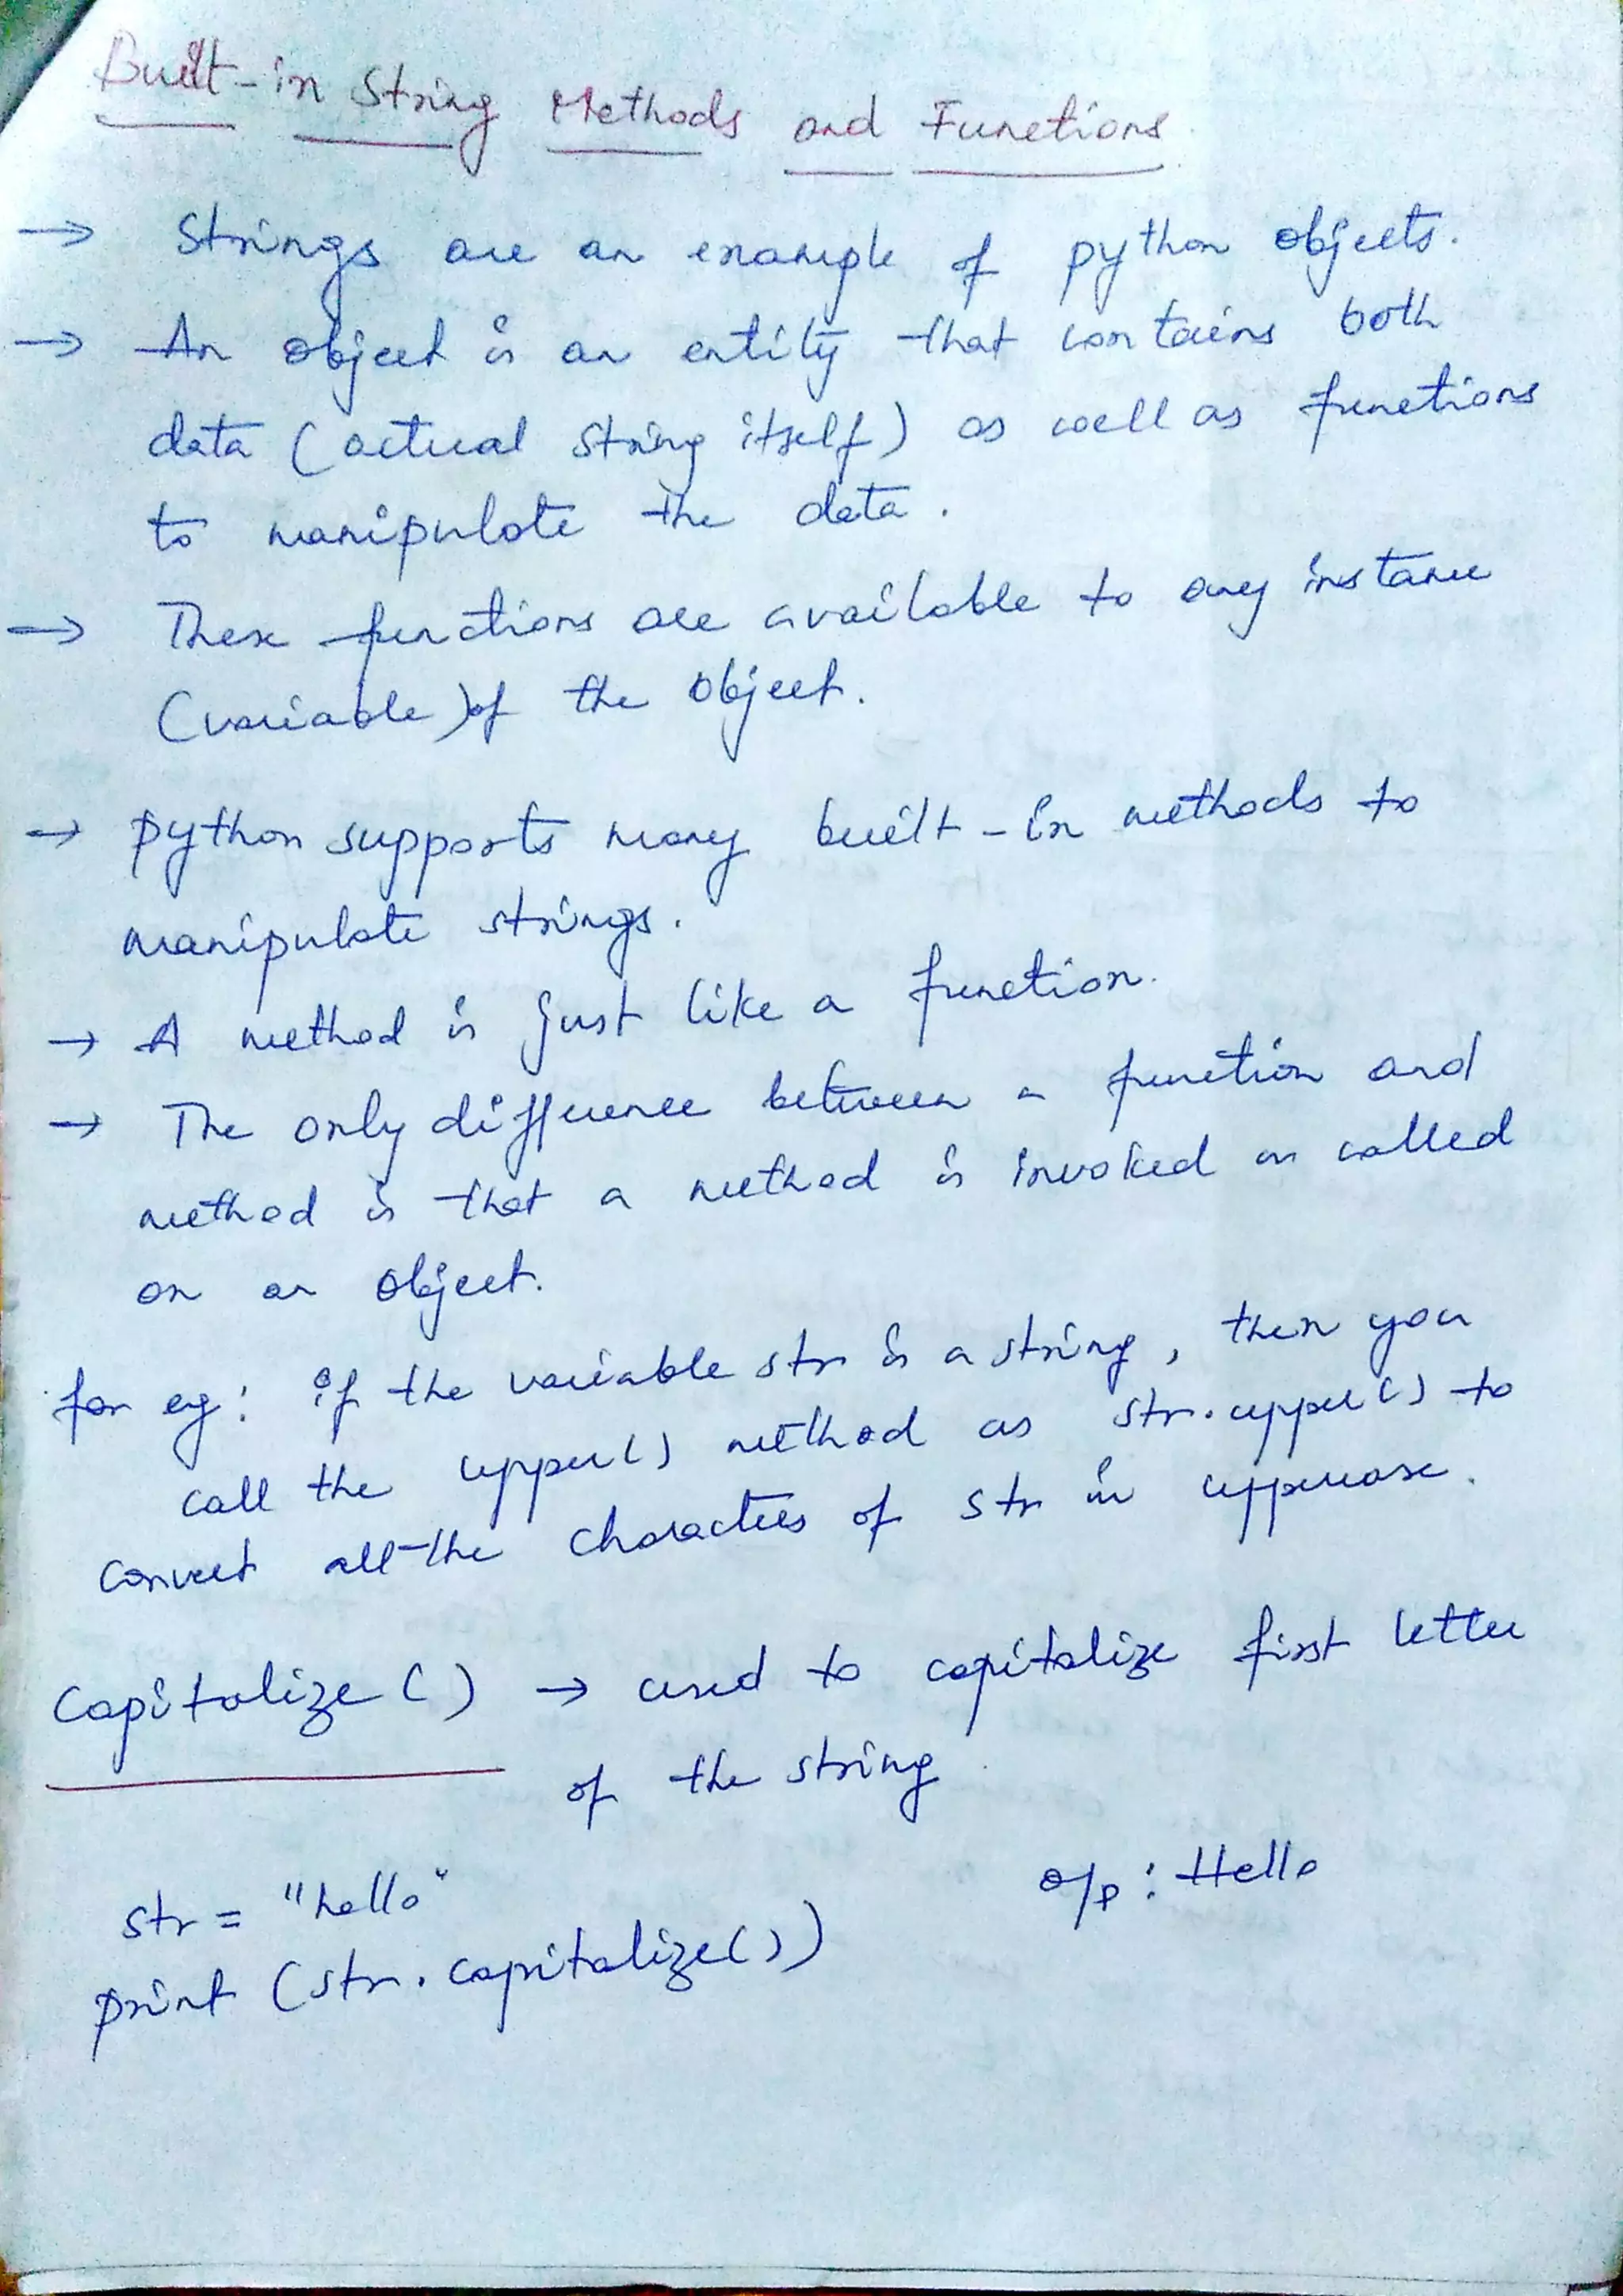 Built-in String Methods and Functions
→ Strings are an example of python objects.
→ An object is an entity that contains both
data (actual string itself) as well as functions
to manipulate the data.
→ These functions are available to any instance
(variable) of the object.
→ python supports many built-in methods to
manipulate strings.
→ A method is just like a function.
→ The only difference between a function and
method is that a method is invoked or called
on an object.
for eg: if the variable str is a string, then you
call the upper() method as str.upper() to
convert all the characters of str in uppercase.
Capitalize() → used to capitalize first letter
of the string
str = "hello"
o/p: Hello
print (str.capitalize())